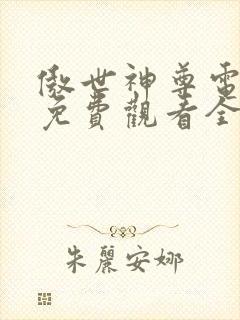 傲世神尊電
免費觀看全
朱麗安娜